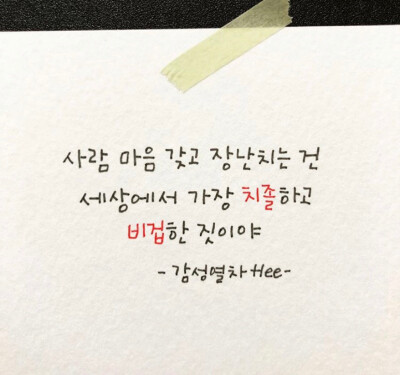 사람 마음 갖고 장난치는 건
세상에서 가장 치졸하고
비겁한 짓이야
-감성열차Hee-